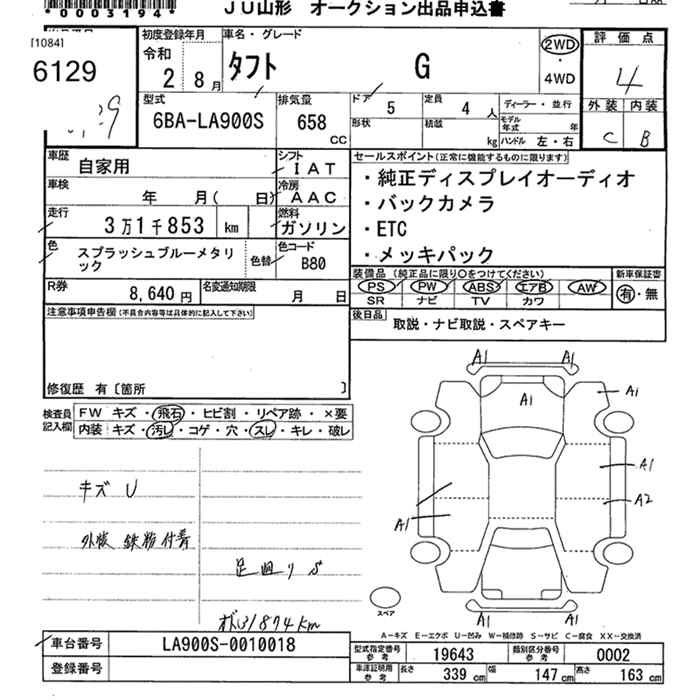 *0003194*
JU山形 オークション出品申込書
[1084]
6129
初度登録年月
令和
2 8月
車名・グレード
タフト G
2WD
・
4WD
評価点
4
外装 内装
C B
型式
6BA-LA900S
排気量
658
CC
ドア 5
形状
定員 4 人
積載 kg
ディーラー・並行
モデル年式 年
ハンドル 左・右
車歴
自家用
シフト
IAT
車検
年 月( 日)
冷房
AAC
走行
3万1千853 km
燃料
ガソリン
色
スプラッシュブルーメタリ
ック
色替
色コード
B80
R券
8,640円
名変通知期限
月 日
セールスポイント(正常に機能するものに限ります)
・純正ディスプレイオーディオ
・バックカメラ
・ETC
・メッキパック
装備品 (純正品に限り○をつけてください)
PS PW ABS エアB AW
SR ナビ TV カワ
新車保証書
有・無
後日品
取説・ナビ取説・スペアキー
注意事項申告欄(不具合内容等は具体的に記入して下さい)
修復歴 有〔箇所 〕
検査員
記入欄
FW キズ・飛石・ヒビ割・リペア跡・×要
内装 キズ・汚レ・コゲ・穴・スレ・キレ・破レ
キズ U
外板 鉄粉付着
足廻り S
オドメ31874km
A1 A1
A1
A1
A1
A2
A1
A1 A1
スペア
A-キズ E-エクボ U-凹み W-補修跡 S-サビ C-腐食 XX-交換済
車台番号
LA900S-0010018
登録番号
型式指定番号
参考
19643
類別区分番号
参考
0002
車庫証明用
参考
長さ 339 cm
幅 147 cm
高さ 163 cm